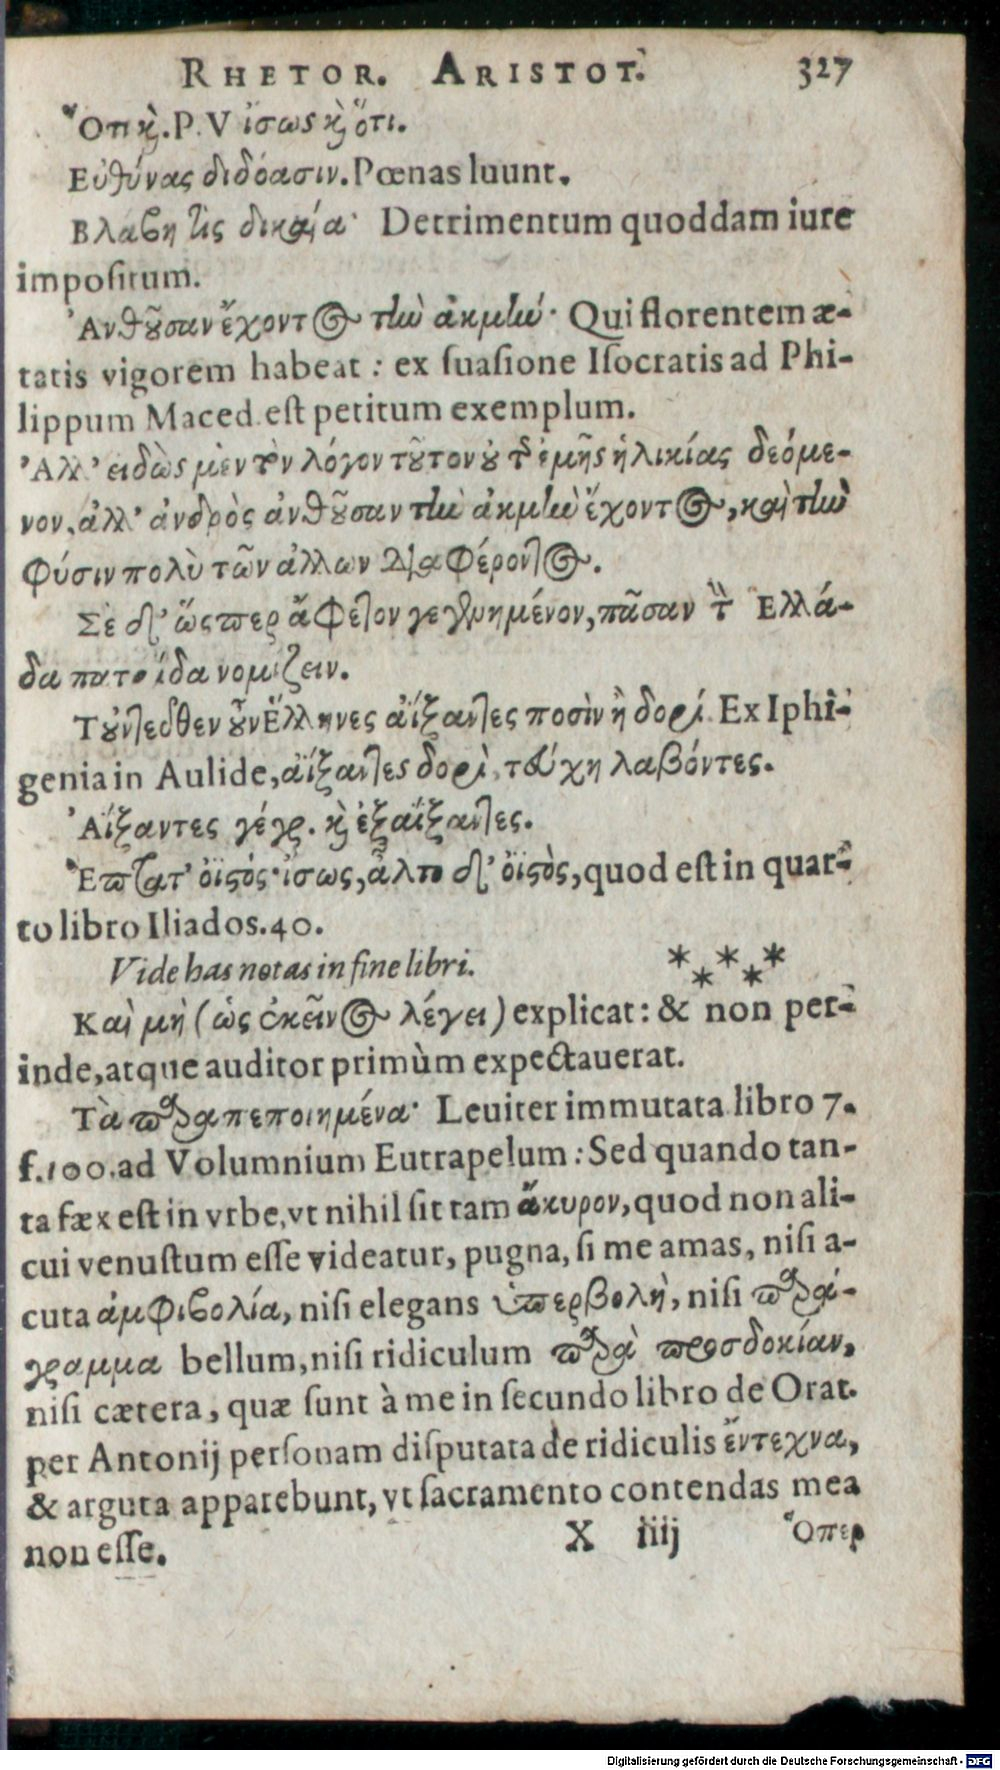 RHETOR. ARISTOT. 327
Ὅτι καὶ. P. V ἴσως καὶ ὅτι.
Εὐθύνας διδόασιν. Pœnas luunt.
Βλάβη τις δικαία· Detrimentum quoddam iure
impositum.
Ἀνθοῦσαν ἔχοντος τὴν ἀκμήν· Qui florentem æ-
tatis vigorem habeat: ex suasione Isocratis ad Phi-
lippum Maced. est petitum exemplum.
Ἀλλ' εἰδὼς μὲν τὸν λόγον τοῦτον οὐ τῆς ἐμῆς ἡλικίας δεόμε-
νον, ἀλλ' ἀνδρὸς ἀνθοῦσαν τὴν ἀκμὴν ἔχοντος, καὶ τὴν
φύσιν πολὺ τῶν ἄλλων διαφέροντος.
Σὲ δ' ὥσπερ ἄφετον γεγενημένον, πᾶσαν τὴν Ἑλλά-
δα πατρίδα νομίζειν.
Τοὐντεῦθεν οὖν Ἕλληνες ἀΐξαντες ποσὶν ἢ δορί. Ex Iphi-
genia in Aulide, ἀΐξαντες δορὶ, τύχῃ λαβόντες.
Ἀΐξαντες γέγρ. καὶ ἐξαΐξαντες.
Ἔπτατ' ὀϊστός· ἴσως, ἆλτο δ' ὀϊστὸς, quod est in quar-
to libro Iliados. 40.
Vide has notas in fine libri. * * * * *
Καὶ μὴ (ὡς ἐκεῖνος λέγει) explicat: & non per-
inde, atque auditor primùm expectauerat.
Τὰ παραπεποιημένα· Leuiter immutata libro 7.
f. 100. ad Volumnium Eutrapelum: Sed quando tan-
ta fæx est in vrbe, vt nihil sit tam ἄκυρον, quod non ali-
cui venustum esse videatur, pugna, si me amas, nisi a-
cuta ἀμφιβολία, nisi elegans ὑπερβολὴ, nisi παρά-
γραμμα bellum, nisi ridiculum παρὰ προσδοκίαν,
nisi cætera, quæ sunt à me in secundo libro de Orat.
per Antonij personam disputata de ridiculis ἔντεχνα,
& arguta apparebunt, vt sacramento contendas mea
non esse. X iiij Ὅπερ
Digitalisierung gefördert durch die Deutsche Forschungsgemeinschaft - DFG